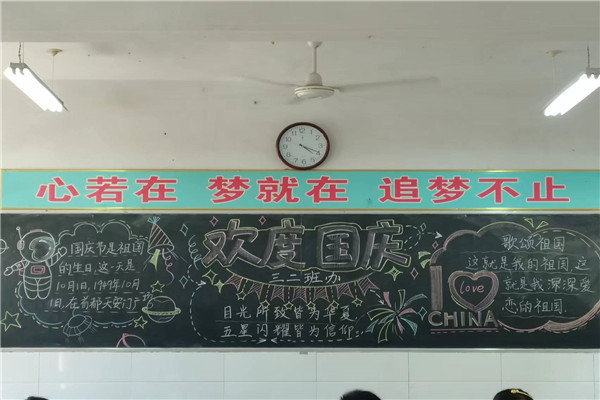 心若在 梦就在 追梦不止
国庆节是祖国
的生日,这一天是
10月1日,1949年10月
1日,在首都天安门广场
欢度国庆
三二班办
目光所致皆为华夏
五星闪耀皆为信仰
I
love
CHINA
歌颂祖国
这就是我的祖国,这
就是我深深爱
恋的祖国.